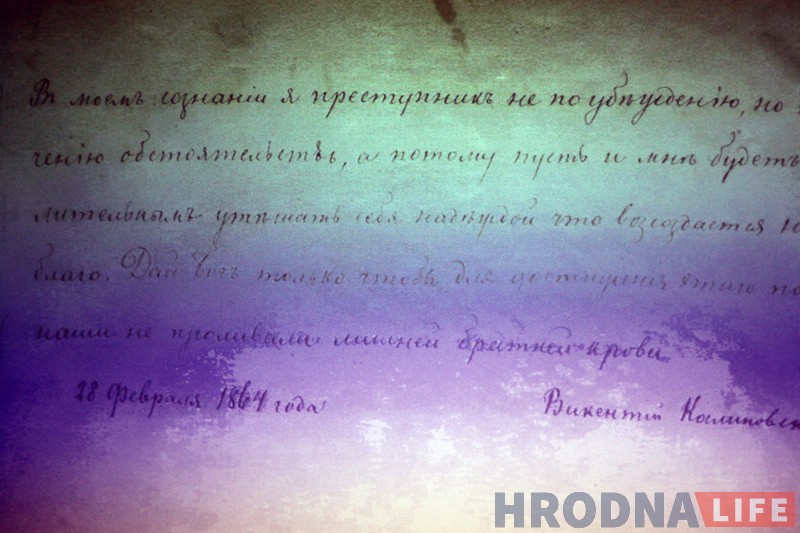 Въ моемъ сознаніи я преступникъ не по убѣжденію, но
ченію обстоятельствъ, а потому пусть и мнѣ будетъ
лительнымъ утѣшать себя надеждой что возсоздастся
благо. Дай Богъ только чтобы для достиженія этаго по
наши не проливали лишней братней крови
28 Февраля 1864 года Викентій Калиновск
HRODNA LIFE